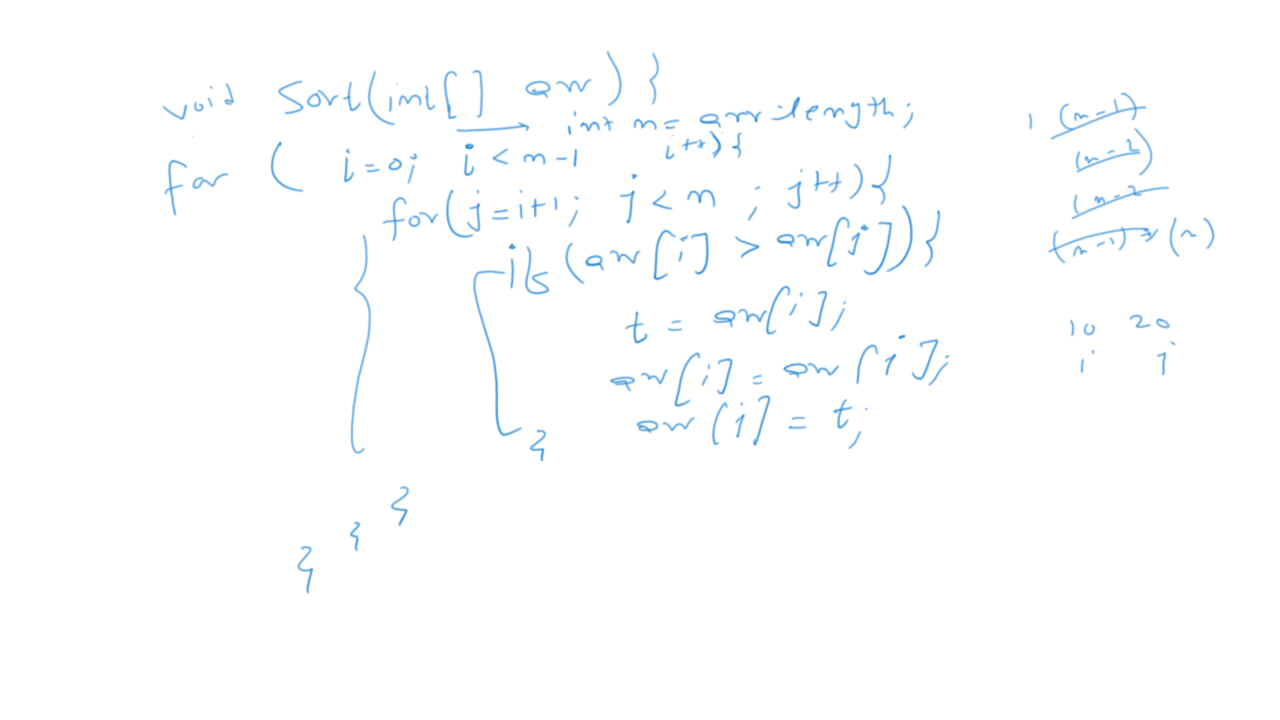 void Sort(int[] arr) {
int n = arr.length;
for ( i=0; i < n-1 i++){
for(j=i+1; j < n ; j++){
if (arr[i] > arr[j]){
t = arr[i];
arr[i] = arr[j];
arr[j] = t;
}
}
}
}
1 (n-1)
(n-2)
(n-2
(n-1) → (n)
10 20
i j